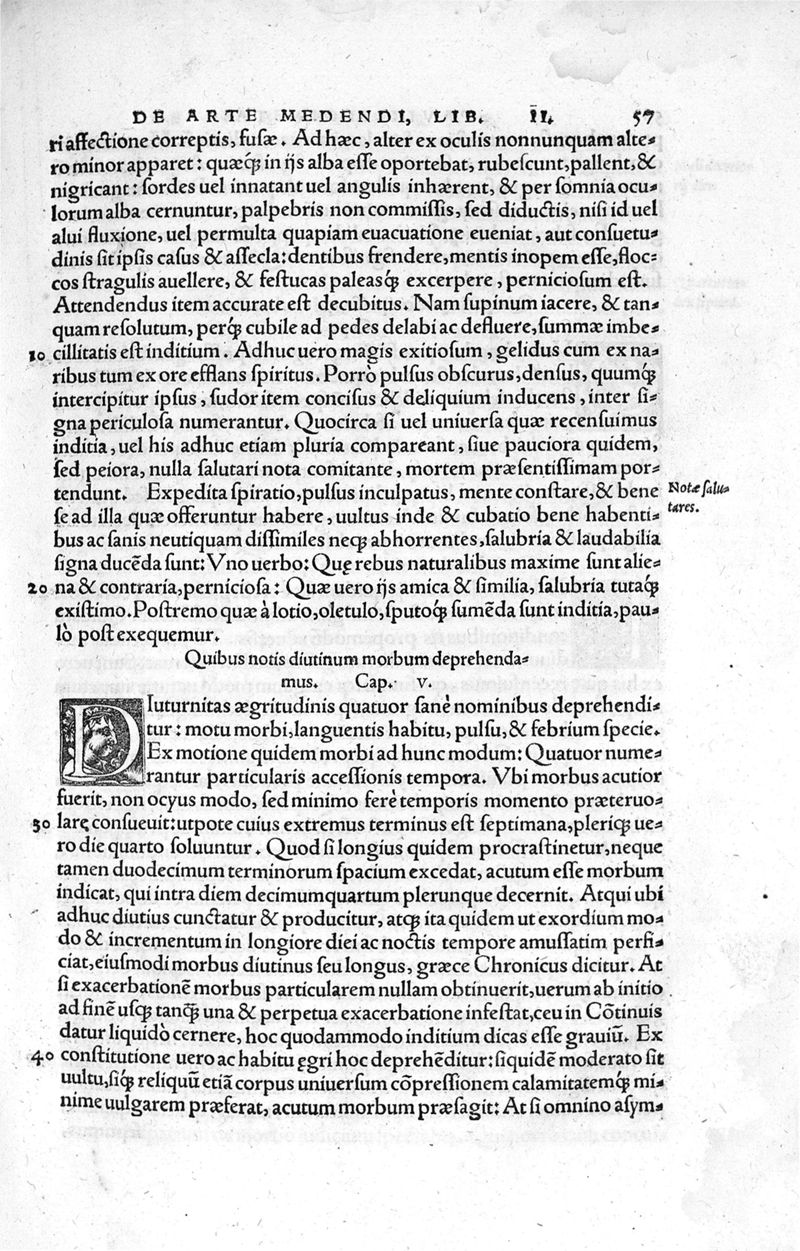 DE ARTE MEDENDI, LIB. II. 57
ri affectione correptis, fusæ. Ad hæc, alter ex oculis nonnunquam alte-
ro minor apparet: quæcꝫ in ijs alba esse oportebat, rubescunt, pallent, &
nigricant: sordes uel innatant uel angulis inhærent, & per somnia ocu-
lorum alba cernuntur, palpebris non commissis, sed diductis, nisi id uel
alui fluxione, uel permulta quapiam euacuatione eueniat, aut consuetu-
dinis sit ipsis casus & assecla: dentibus frendere, mentis inopem esse, floc-
cos stragulis auellere, & festucas paleascꝫ excerpere, perniciosum est.
Attendendus item accurate est decubitus. Nam supinum iacere, & tan-
quam resolutum, percꝫ cubile ad pedes delabi ac defluere, summæ imbe-
10 cillitatis est inditium. Adhuc uero magis exitiosum, gelidus cum ex na-
ribus tum ex ore efflans spiritus. Porrò pulsus obscurus, densus, quumcꝫ
intercipitur ipsus, sudor item concisus & deliquium inducens, inter si-
gna periculosa numerantur. Quocirca si uel uniuersa quæ recensuimus
inditia, uel his adhuc etiam pluria compareant, siue pauciora quidem,
sed peiora, nulla salutari nota comitante, mortem præsentissimam por-
tendunt. Expedita spiratio, pulsus inculpatus, mente constare, & bene
Notæ salu-
tares.
se ad illa quæ offeruntur habere, uultus inde & cubatio bene habenti-
bus ac sanis neutiquam dissimiles necꝫ abhorrentes, salubria & laudabilia
signa ducẽda sunt: Vno uerbo: Quę rebus naturalibus maxime sunt alie-
20 na & contraria, perniciosa: Quæ uero ijs amica & similia, salubria tutacꝫ
existimo. Postremo quæ à lotio, oletulo, sputocꝫ sumẽda sunt inditia, pau-
lò post exequemur.
Quibus notis diutinum morbum deprehenda-
mus. Cap. v.
DIuturnitas ægritudinis quatuor sanè nominibus deprehendi-
tur: motu morbi, languentis habitu, pulsu, & febrium specie.
Ex motione quidem morbi ad hunc modum: Quatuor nume-
rantur particularis accessionis tempora. Vbi morbus acutior
fuerit, non ocyus modo, sed minimo ferè temporis momento præteruo-
30 larę consueuit: utpote cuius extremus terminus est septimana, plericꝫ ue-
ro die quarto soluuntur. Quod si longius quidem procrastinetur, neque
tamen duodecimum terminorum spacium excedat, acutum esse morbum
indicat, qui intra diem decimumquartum plerunque decernit. Atqui ubi
adhuc diutius cunctatur & producitur, atcꝫ ita quidem ut exordium mo-
do & incrementum in longiore diei ac noctis tempore amussatim perfi-
ciat, eiusmodi morbus diutinus seu longus, græce Chronicus dicitur. At
si exacerbationẽ morbus particularem nullam obtinuerit, uerum ab initio
ad finẽ uscꝫ tancꝫ una & perpetua exacerbatione infestat, ceu in Cõtinuis
datur liquidò cernere, hoc quodammodo inditium dicas esse grauiũ. Ex
40 constitutione uero ac habitu ęgri hoc deprehẽditur: siquidẽ moderato sit
uultu, sicꝫ reliquũ etiã corpus uniuersum cõpressionem calamitatemcꝫ mi-
nime uulgarem præferat, acutum morbum præsagit: At si omnino asym-